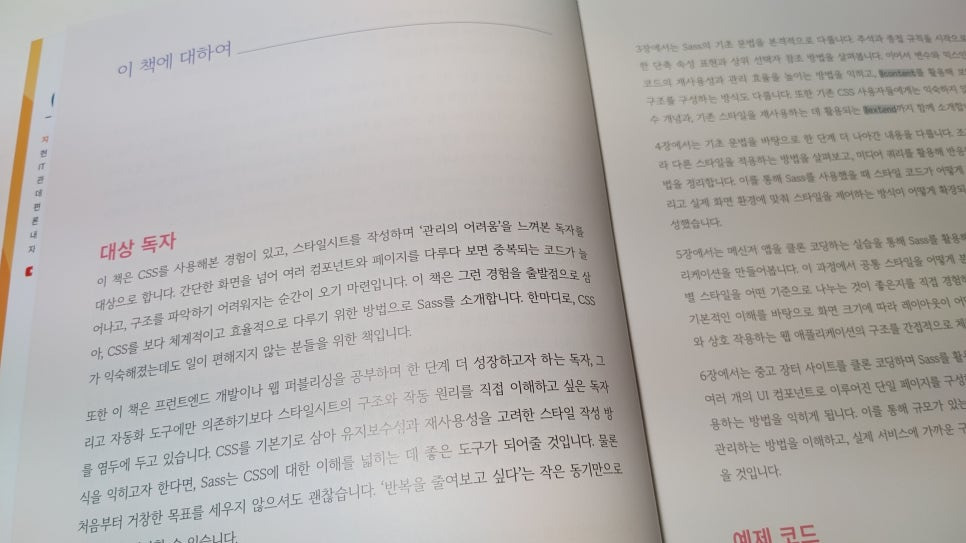 이 책에 대하여
대상 독자
이 책은 CSS를 사용해본 경험이 있고, 스타일시트를 작성하며 ‘관리의 어려움’을 느껴본 독자를
대상으로 합니다. 간단한 화면을 넘어 여러 컴포넌트와 페이지를 다루다 보면 중복되는 코드가 늘
어나고, 구조를 파악하기 어려워지는 순간이 오기 마련입니다. 이 책은 그런 경험을 출발점으로 삼
아, CSS를 보다 체계적이고 효율적으로 다루기 위한 방법으로 Sass를 소개합니다. 한마디로, CSS
가 익숙해졌는데도 일이 편해지지 않는 분들을 위한 책입니다.
또한 이 책은 프런트엔드 개발이나 웹 퍼블리싱을 공부하며 한 단계 더 성장하고자 하는 독자, 그
리고 자동화 도구에만 의존하기보다 스타일시트의 구조와 작동 원리를 직접 이해하고 싶은 독자
를 염두에 두고 있습니다. CSS를 기본기로 삼아 유지보수성과 재사용성을 고려한 스타일 작성 방
식을 익히고자 한다면, Sass는 CSS에 대한 이해를 넓히는 데 좋은 도구가 되어줄 것입니다. 물론
처음부터 거창한 목표를 세우지 않으셔도 괜찮습니다. ‘반복을 줄여보고 싶다’는 작은 동기만으로
수 있습니다.
3장에서는 Sass의 기초 문법을 본격적으로 다룹니다. 주석과 중첩 규칙을 시작으로
한 단축 속성 표현과 상위 선택자 참조 방법을 살펴봅니다. 이어서 변수와 믹스인
코드의 재사용성과 관리 효율을 높이는 방법을 익히고, @content를 활용해
구조를 구성하는 방식도 다룹니다. 또한 기존 CSS 사용자들에게는 익숙하지
수 개념과, 기존 스타일을 재사용하는 데 활용되는 @extend까지 함께 소개합니
4장에서는 기초 문법을 바탕으로 한 단계 더 나아간 내용을 다룹니다. 조
라 다른 스타일을 적용하는 방법을 살펴보고, 미디어 쿼리를 활용해 반응
법을 정리합니다. 이를 통해 Sass를 사용했을 때 스타일 코드가 어떻게
리고 실제 화면 환경에 맞춰 스타일을 제어하는 방식이 어떻게 확장되
성했습니다.
5장에서는 메신저 앱을 클론 코딩하는 실습을 통해 Sass를 활용
리케이션을 만들어봅니다. 이 과정에서 공통 스타일을 어떻게 분
별 스타일을 어떤 기준으로 나누는 것이 좋은지를 직접 경험하
기본적인 이해를 바탕으로 화면 크기에 따라 레이아웃이 어떠
와 상호 작용하는 웹 애플리케이션의 구조를 간접적으로 체
6장에서는 중고 장터 사이트를 클론 코딩하며 Sass를 활
여러 개의 UI 컴포넌트로 이루어진 단일 페이지를 구성
용하는 방법을 익히게 됩니다. 이를 통해 규모가 있는
관리하는 방법을 이해하고, 실제 서비스에 가까운 구
을 것입니다.
예제 코드